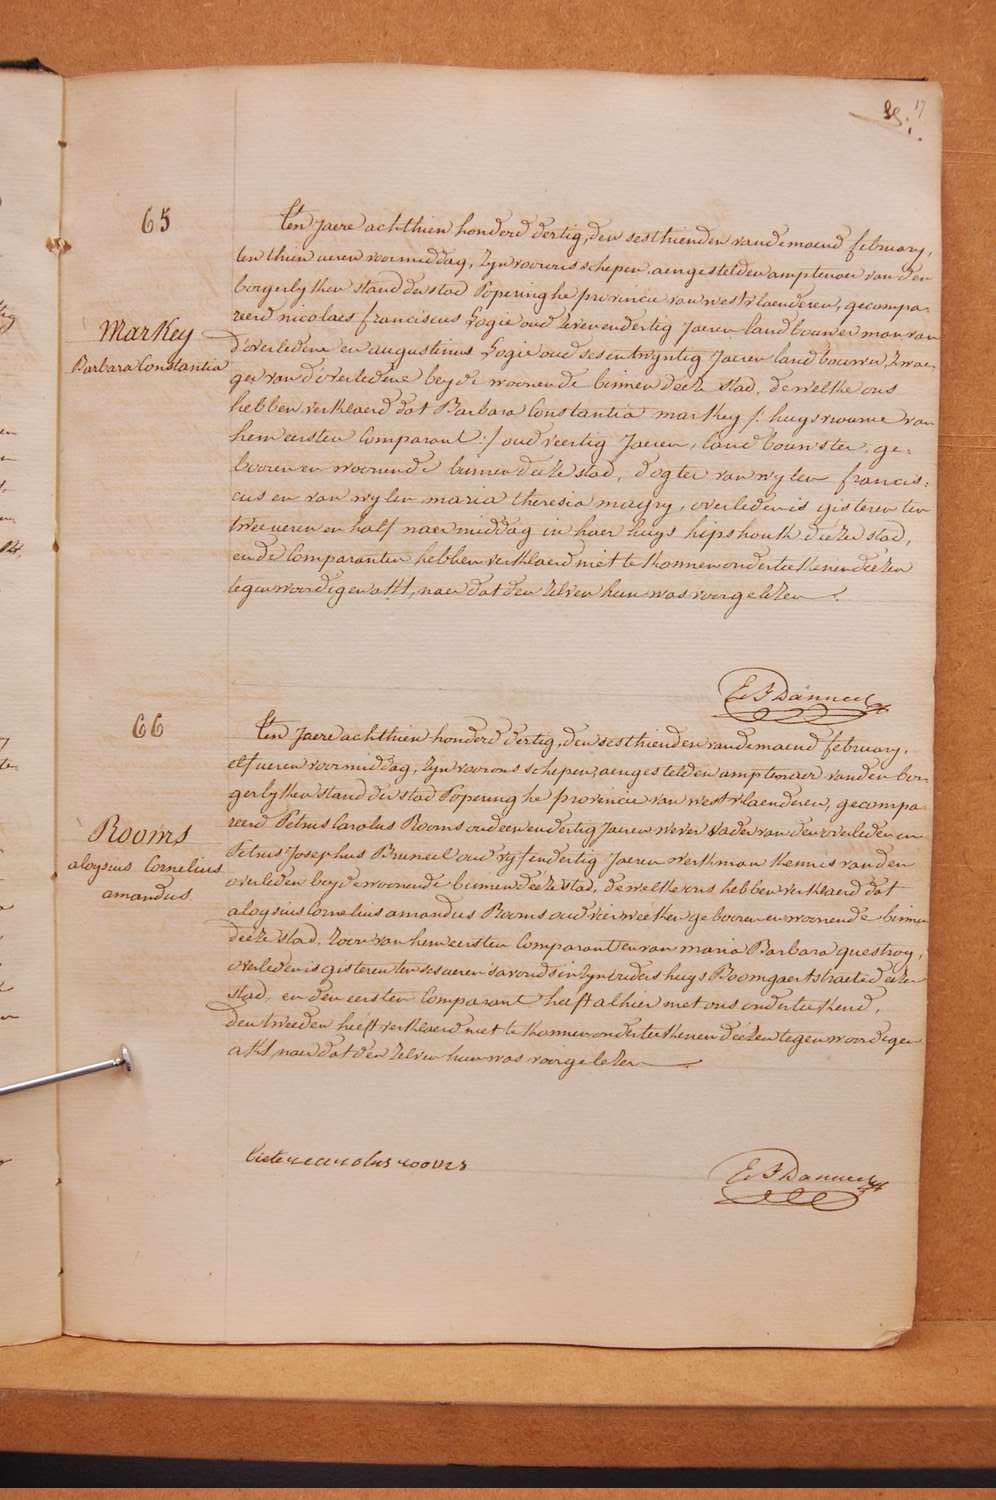 17
65
Ten Jaere achthien honderd dertig, den sesthienden vande maend february,
ten thien ueren voormiddag, Zyn voor ons schepen aengestelden amptenaer van den
borgerlyken stand der stad Poperinghe provincie van westvlaenderen, gecompa-
reerd nicolaes franciscus Logie oud zevenendertig Jaeren landbouwer man van
Markey
d'overledene en augustinus Logie oud sesentwyntig Jaeren landbouwer, zwae-
Barbara Constantia
ger van d'overledene beyde woonende binnen deeze stad, dewelke ons
hebben verklaerd dat Barbara Constantia markey /: huysvrouwe van
hem eersten Comparant :/ oud veertig Jaeren, landbouwster, ge-
booren en woonende binnen deeze stad, dogter van wylen francis-
cus en van wylen maria theresia maeyry, overleden is gisteren ten
twee ueren en half naermiddag in haer huys hipshouk deezer stad,
en de Comparanten hebben verklaerd niet te konnen onderteekenen deezen
tegenwoordigen akt, naer dat den zelven hun was voorgelezen.
66
Ten Jaere achthien honderd dertig, den sesthienden vande maend february,
elf ueren voormiddag, Zyn voor ons schepen, aengestelden amptenaer van den bor-
gerlyken stand der stad Poperinghe provincie van westvlaenderen, gecompa-
reerd Petrus Carolus Rooms oud een en dertig Jaeren wever vader van den overleden en
Rooms
Petrus Josephus Bruneel oud vyfendertig Jaeren werkman kennis van den
aloysius Cornelius
overleden beyde woonende binnen deeze stad, dewelke ons hebben verklaerd dat
amandus
aloysius Cornelius amandus Rooms oud vier weeken gebooren en woonende binnen
deeze stad, zoon van hem eersten Comparant en van maria Barbara questroy,
overleden is gisteren ten ses ueren 's avonds in zyn ouders huys Boomgaertstraete deezer
stad, en den eersten Comparant heeft alhier met ons onderteekend,
den tweeden heeft verklaerd niet te konnen onderteekenen deezen tegenwoordigen
akt, naer dat den zelven hun was voorgelezen